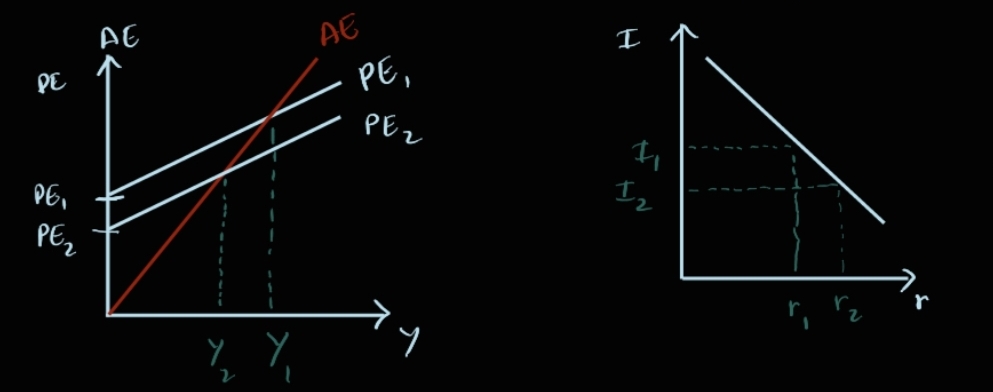 AE
PE
AE
PE₁
PE₂
PE₁
PE₂
Y₂ Y₁
Y
I
I₁
I₂
r₁ r₂
r